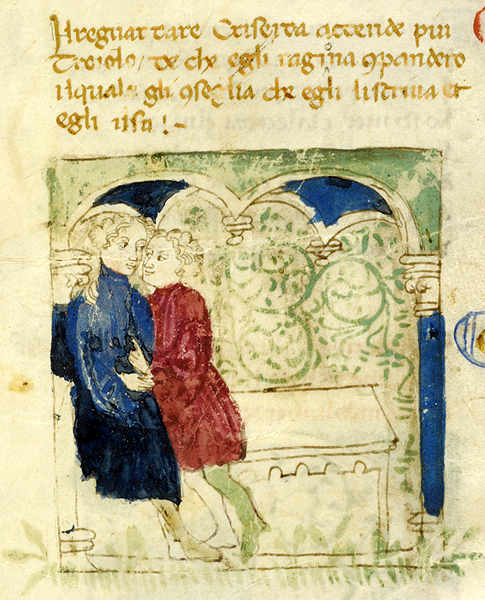 Il reguardare Criseida accende piu
Troiolo / de che egli ragina ꝯ pandero
ilquale gli ꝯseglia che egli li scriua et
egli